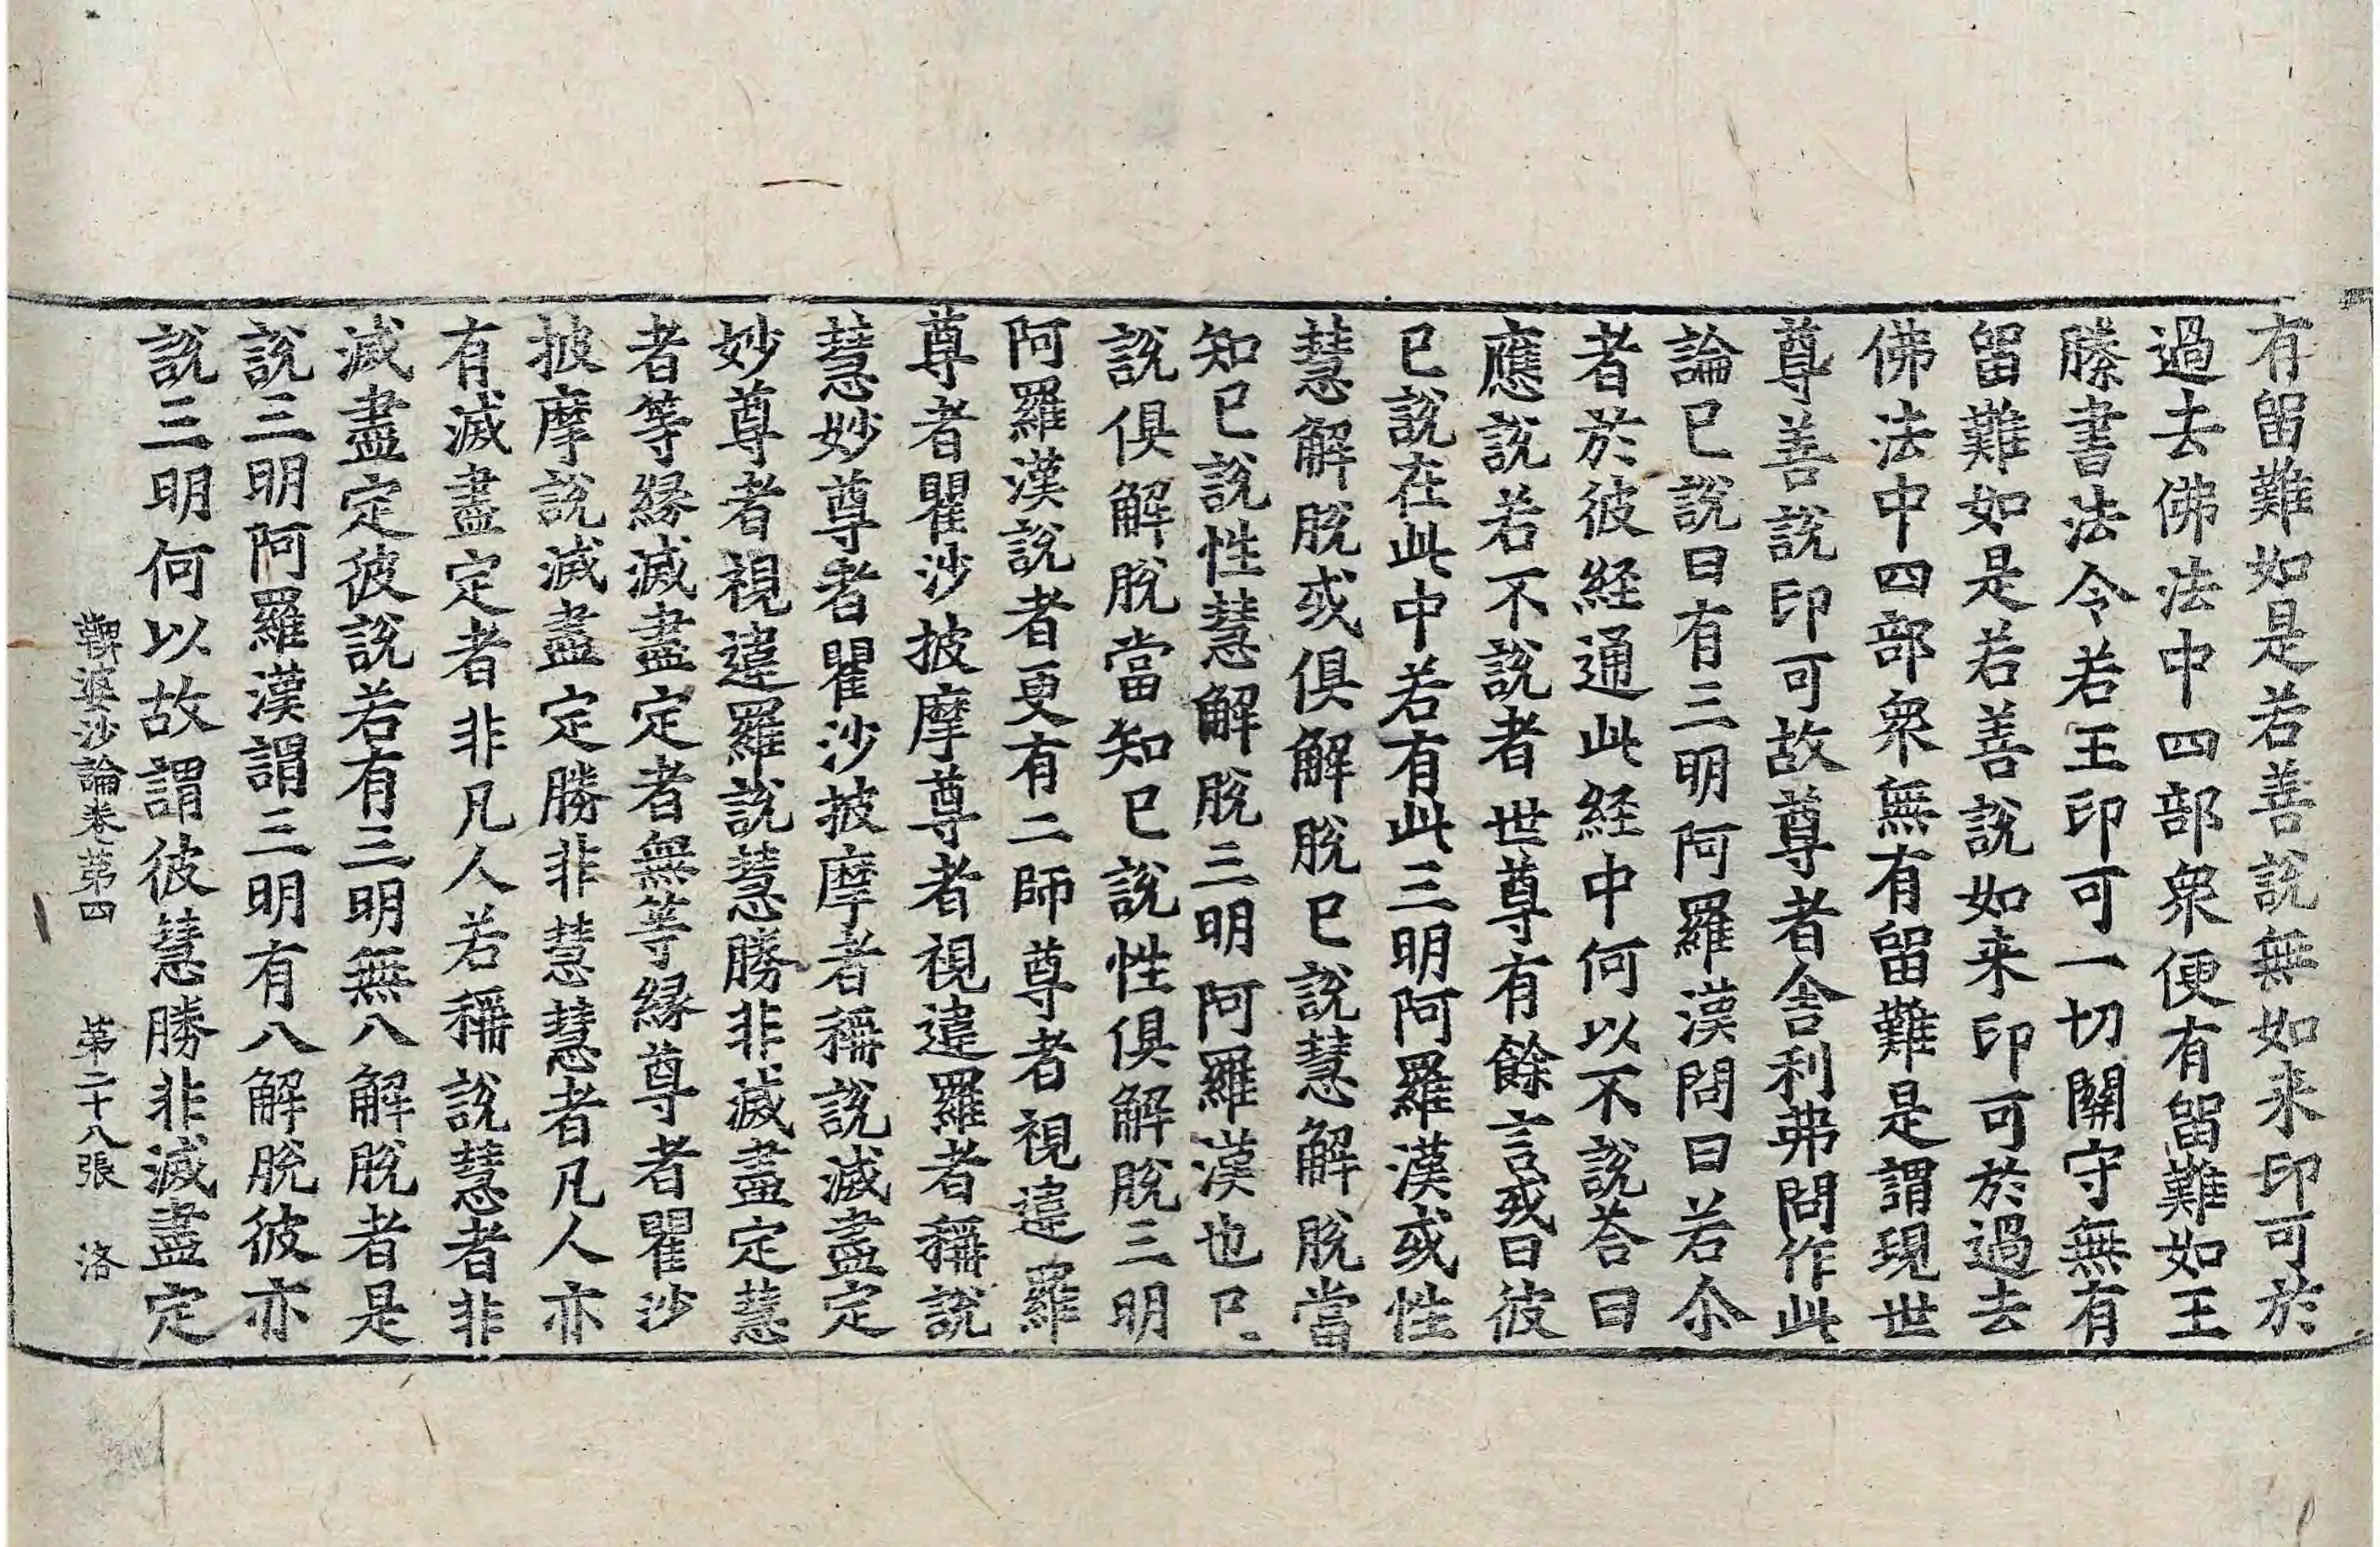 有留難如是若善說無如来印可於
過去佛法中四部衆便有留難如王
勝書法令若王印可一切關守無有
留難如是若善說如来印可於過去
佛法中四部衆無有留難是謂現世
尊善說印可故尊者舍利弗問作此
論已說曰有三明阿羅漢問曰若尒
者於彼経通此経中何以不說荅曰
應說若不說者世尊有餘言或曰彼
已說在此中若有此三明阿羅漢或性
慧解脫或俱解脫已說慧解脫當
知已說性慧解脫三明阿羅漢也已
說俱解脫當知已說性俱解脫三明
阿羅漢說者更有二師尊者視違羅
尊者瞿沙披摩尊者視違羅者稱說
慧妙尊者瞿沙披摩者稱說滅盡定
妙尊者視違羅說慧勝非滅盡定慧
者等緣滅盡定者無等緣尊者瞿沙
披摩說滅盡定勝非慧慧者凡人亦
有滅盡定者非凡人若稱說慧者非
滅盡定彼說若有三明無八解脫者是
說三明阿羅漢謂三明有八解脫彼亦
說三明何以故謂彼慧勝非滅盡定
鞞婆沙論卷第四 第二十八張 洛